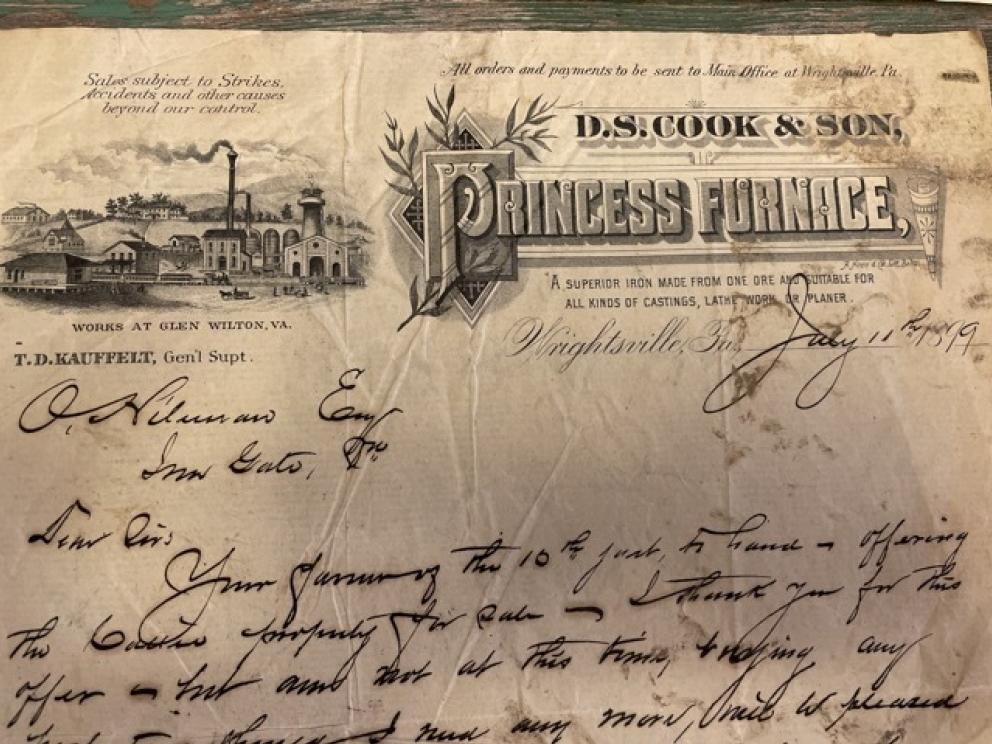 Sales subject to Strikes,
Accidents and other causes
beyond our control.
All orders and payments to be sent to Main Office at Wrightsville, Pa.
D.S. COOK & SON,
PRINCESS FURNACE,
A SUPERIOR IRON MADE FROM ONE ORE AND SUITABLE FOR
ALL KINDS OF CASTINGS, LATHE WORK OR PLANER.
WORKS AT GLEN WILTON, VA.
T. D. KAUFFELT, Gen'l Supt.
Wrightsville, Pa. July 11th
Iron Gate, Va
Dear Sir:
Your favor of the 10th to hand - offering
the property for sale - I thank you for this
offer - but am not at this time, buying any
I need any more, will be pleased